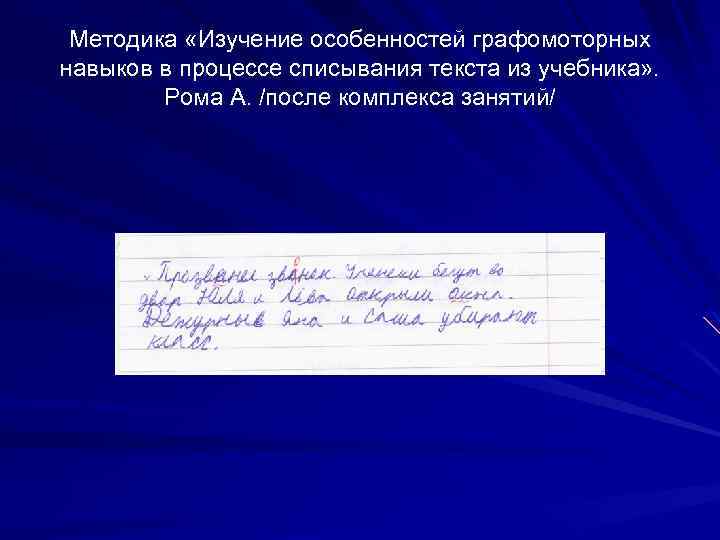 Методика «Изучение особенностей графомоторных
навыков в процессе списывания текста из учебника» .
Рома А. /после комплекса занятий/
звонек. Ученеки бегут во
двор Юля и Лёва открыли окна.
Дежурные Яна и Саша убирают
класс.